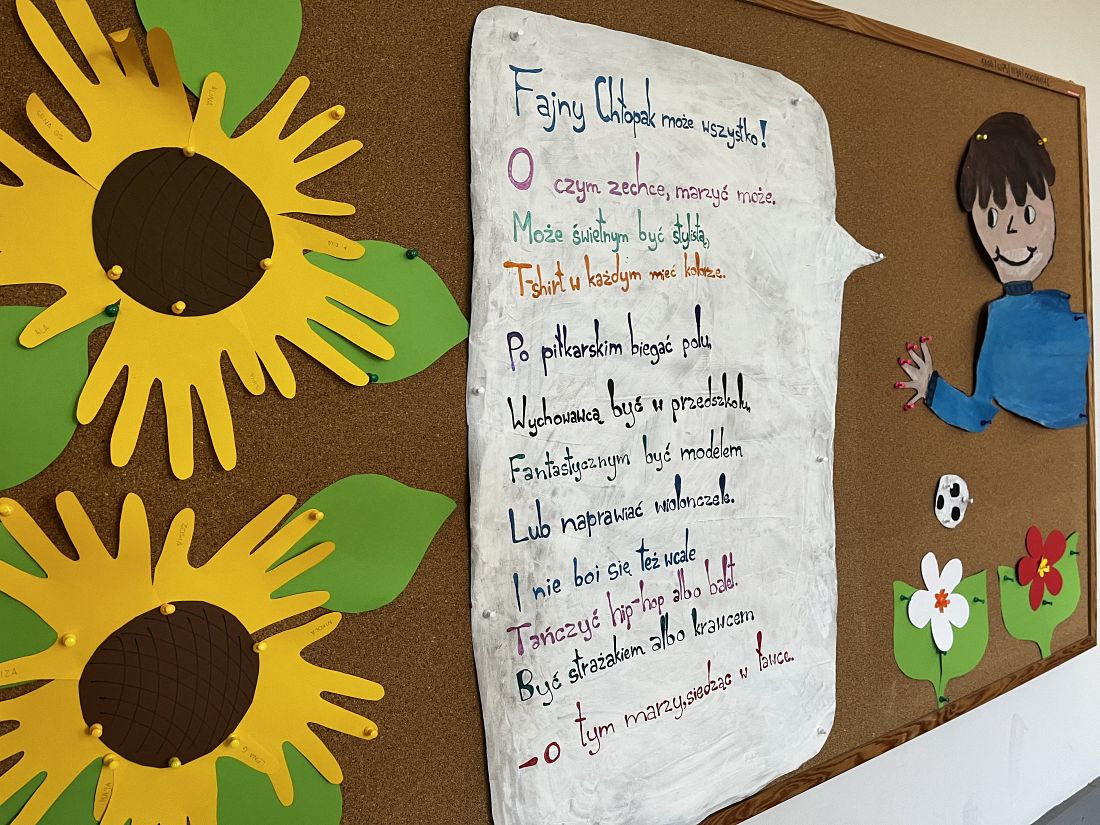 Fajny Chłopak może wszystko!
O czym zechce, marzyć może.
Może świetnym być stylistą,
T-shirt w każdym mieć kolorze.
Po piłkarskim biegać polu,
Wychowawcą być w przedszkolu,
Fantastycznym być modelem
Lub naprawiać wiolonczele.
I nie boi się też wcale
Tańczyć hip-hop albo balet.
Być strażakiem albo krawcem
- O tym marzy, siedząc w ławce.
ALA
ZUZIA
NIKOLA
LENA G
MAJA